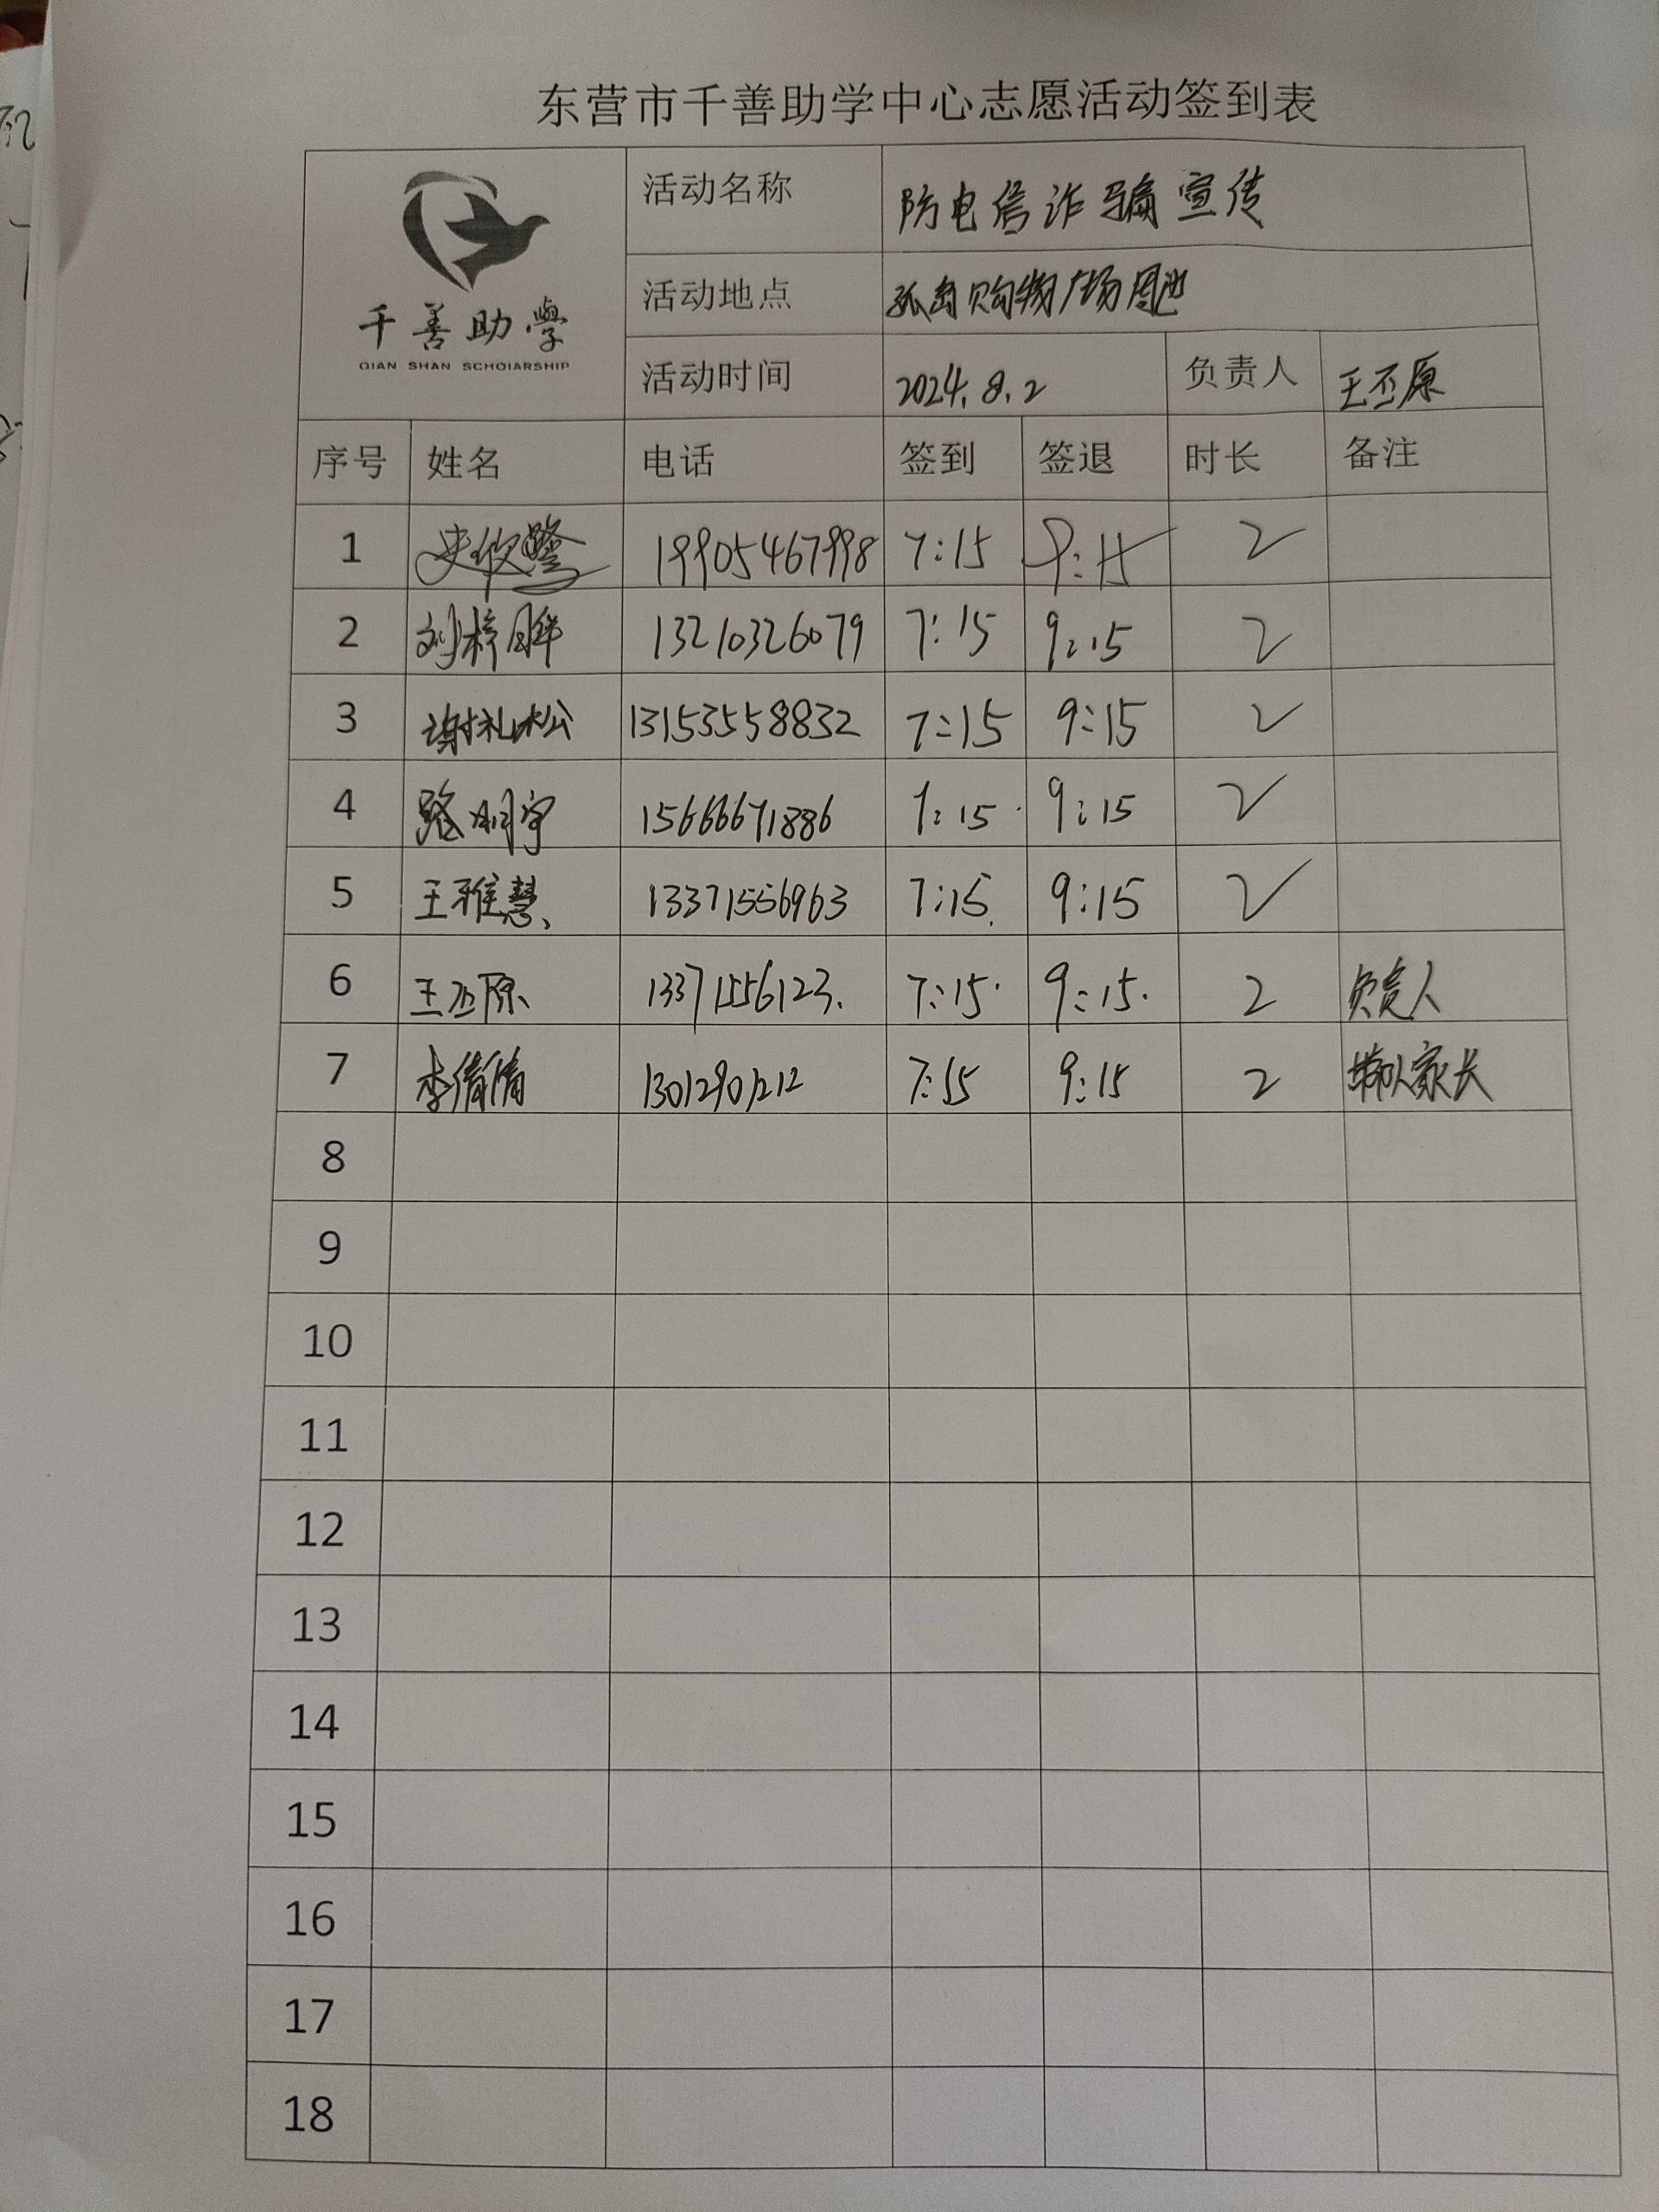 东营市千善助学中心志愿活动签到表
千善助學
QIAN SHAN SCHOIARSHIP
活动名称 防电信诈骗宣传
活动地点 孤岛购物广场周边
活动时间 2024.8.2 负责人 王丕原
序号 姓名 电话 签到 签退 时长 备注
1 19905467998 7:15 9:15 2
2 刘梓 13210326079 7:15 9:15 2
3 谢礼松 13153558832 7:15 9:15 2
4 路明宇 15666671886 7:15 9:15 2
5 王雅慧 13371556963 7:15 9:15 2
6 王丕原 13371556123. 7:15. 9:15. 2 负责人
7 李倩倩 13012901212 7:15 9:15 2 带队家长
8
9
10
11
12
13
14
15
16
17
18